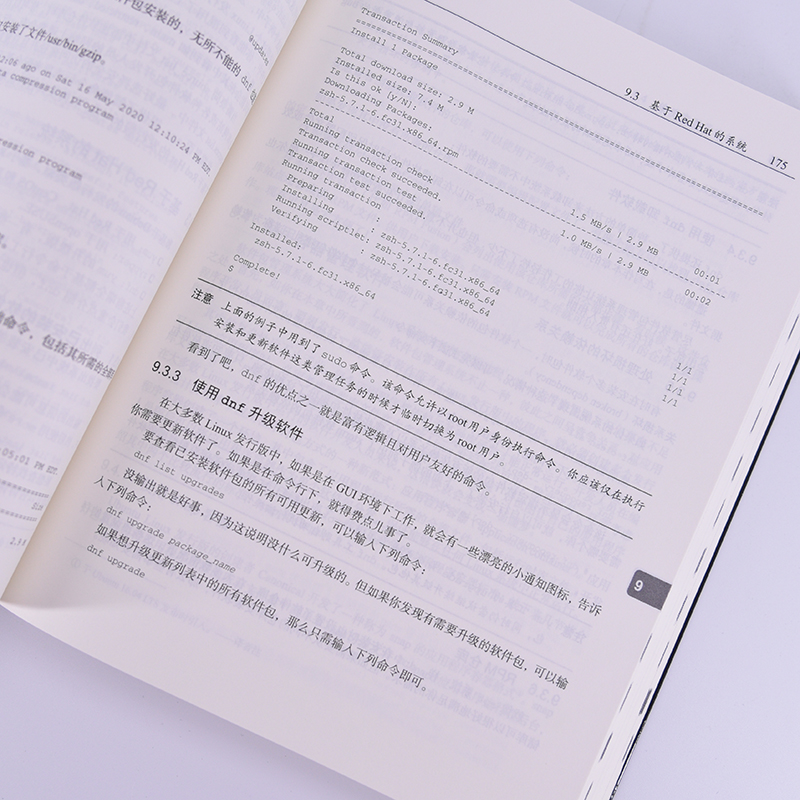 件包安装的，无所不能的dnf
@updates
安装了文件/usr/bin/gzip。
2:06 ago on Sat 16 May 2020 12:10:24 PM EDT.
compression program
ression program
命令，包括其所需的全部
:05:01 PM EDT.
9.3 基于 Red Hat 的系统 175
Transaction Summary
================================================================
Install 1 Package
Total download size: 2.9 M
Installed size: 7.4 M
Is this ok [y/N]:
Downloading Packages:
zsh-5.7.1-6.fc31.x86_64.rpm 1.5 MB/s | 2.9 MB 00:01
----------------------------------------------------------------
Total 1.0 MB/s | 2.9 MB 00:02
Running transaction check
Transaction check succeeded.
Running transaction test
Transaction test succeeded.
Running transaction
Preparing : 1/1
Installing : zsh-5.7.1-6.fc31.x86_64 1/1
Running scriptlet: zsh-5.7.1-6.fc31.x86_64 1/1
Verifying : zsh-5.7.1-6.fc31.x86_64 1/1
Installed:
zsh-5.7.1-6.fc31.x86_64
Complete!
$
注意 上面的例子中用到了sudo命令。该命令允许以root用户身份执行命令。你应该仅在执行
安装和更新软件这类管理任务的时候才临时切换为root用户。
看到了吧，dnf的优点之一就是富有逻辑且对用户友好的命令。
9.3.3 使用 dnf 升级软件
在大多数Linux发行版中，如果是在GUI环境下工作，就会有一些漂亮的小通知图标，告诉
你需要更新软件了。如果是在命令行下，就得费点儿事了。
要查看已安装软件包的所有可用更新，可以输入下列命令：
dnf list upgrades
没输出就是好事，因为这说明没什么可升级的。但如果你发现有需要升级的软件包，可以输
入下列命令：
dnf upgrade package_name
如果想升级更新列表中的所有软件包，那么只需输入下列命令即可。
dnf upgrade
9